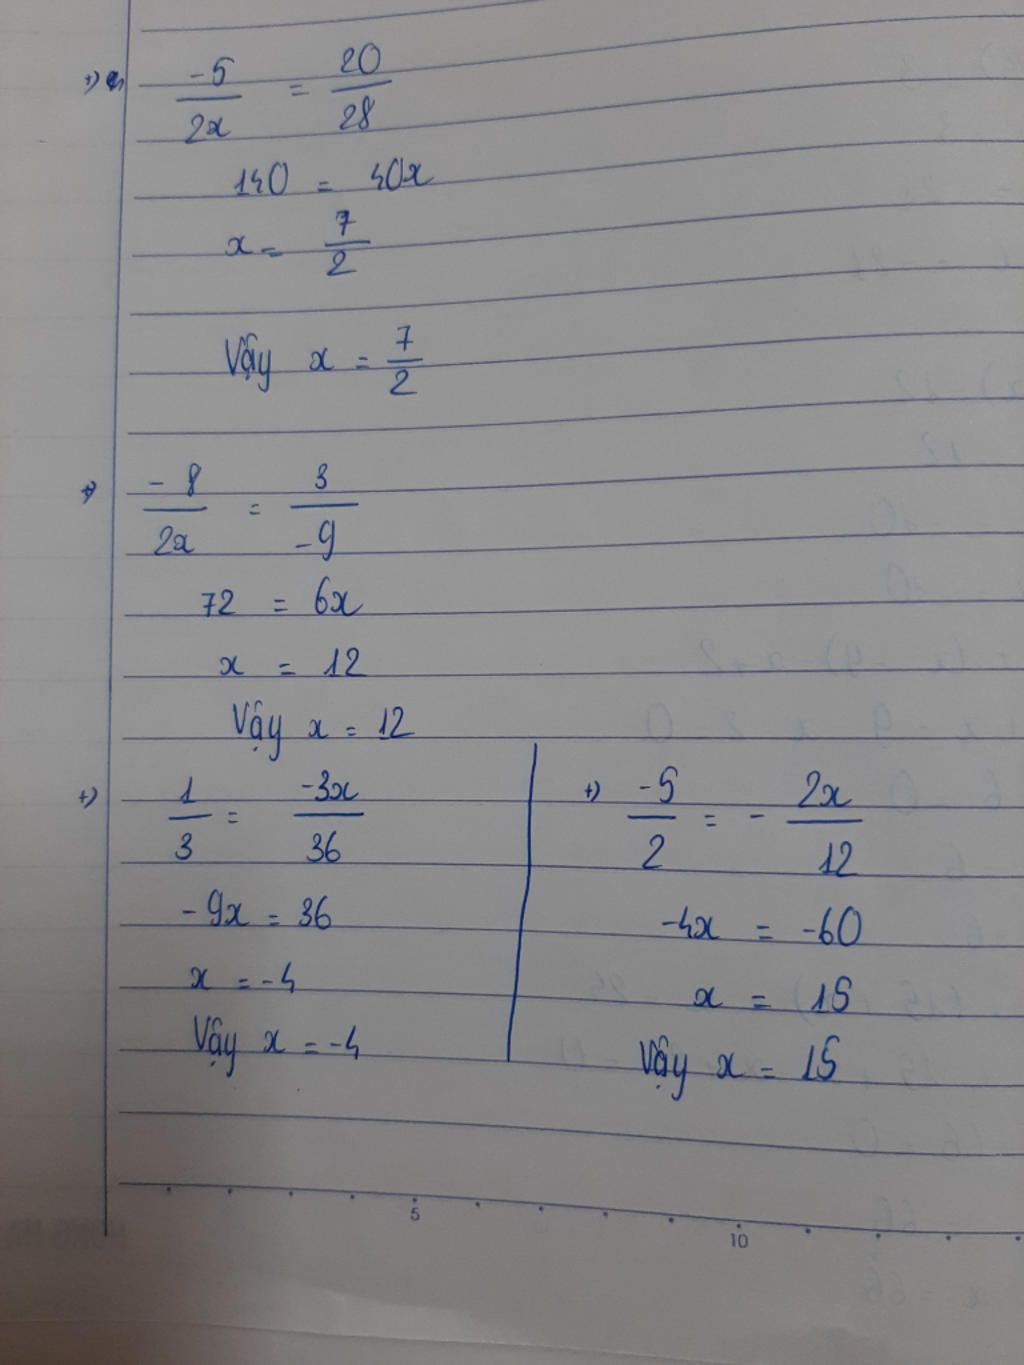 +) -5/2x = 20/28
140 = 40x
x = 7/2
Vậy x = 7/2
+) -8/2x = 3/-9
72 = 6x
x = 12
Vậy x = 12
+) 1/3 = -3x/36
-9x = 36
x = -4
Vậy x = -4
+) -5/2 = - 2x/12
-4x = -60
x = 15
Vậy x = 15
5
10